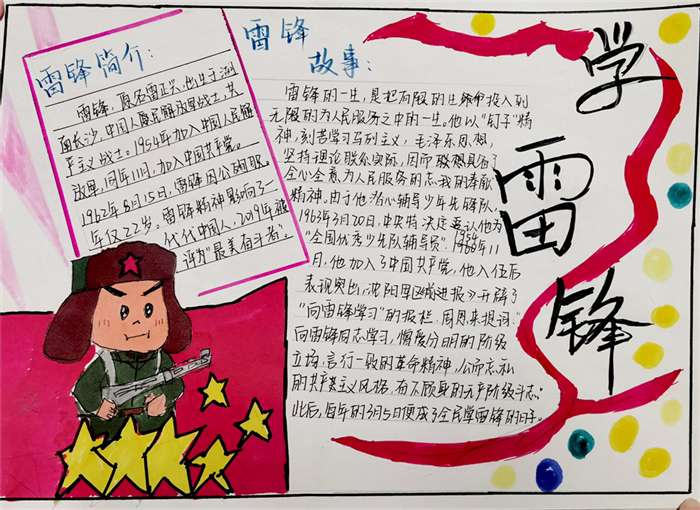 学雷锋
雷锋简介:
雷锋,原名雷正兴,出生于湖
南长沙,中国人民解放军战士,共
产主义战士。1954年加入中国人民解
放军,同年11月,加入中国共产党。
1962年8月15日,雷锋因公殉职,
年仅22岁。雷锋精神影响了一
代代中国人,2019年被
评为“最美奋斗者”。
雷锋
故事:
雷锋的一生,是把有限的生命投入到
无限的为人民服务之中的一生。他以“钉子”精
神,刻苦学习马列主义,毛泽东思想,
坚持理论联系实际,因而
全心全意为人民服务的
精神。由于他热心辅导少年先锋队,
1963年3月20日,中央
“全国优秀少先队辅导员”。
月,他加入了中国共产党,他入伍后
表现突出,沈阳
“向雷锋学习”的报栏,周恩来提词:“
向雷锋同志学习,憎爱分明的阶级
立场,言行一致的革命精神,公而忘私
的共产主义风格,奋不顾身的无产阶级斗志。”
此后,每年的3月5日便成了全民学雷锋的日子。